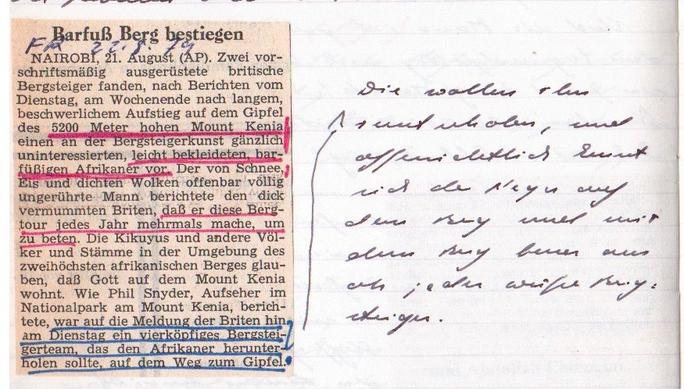 Barfuß Berg bestiegen
FR 22.8.79
NAIROBI, 21. August (AP). Zwei vor-
schriftsmäßig ausgerüstete britische
Bergsteiger fanden, nach Berichten vom
Dienstag, am Wochenende nach langem,
beschwerlichem Aufstieg auf dem Gipfel
des 5200 Meter hohen Mount Kenia
einen an der Bergsteigerkunst gänzlich
uninteressierten, leicht bekleideten, bar-
füßigen Afrikaner vor. Der von Schnee,
Eis und dichten Wolken offenbar völlig
ungerührte Mann berichtete den dick
vermummten Briten, daß er diese Berg-
tour jedes Jahr mehrmals mache, um
zu beten. Die Kikuyus und andere Völ-
ker und Stämme in der Umgebung des
zweithöchsten afrikanischen Berges glau-
ben, daß Gott auf dem Mount Kenia
wohnt. Wie Phil Snyder, Aufseher im
Nationalpark am Mount Kenia, berich-
tete, war auf die Meldung der Briten hin
am Dienstag ein vierköpfiges Bergstei-
gerteam, das den Afrikaner herunter-
holen sollte, auf dem Weg zum Gipfel.
Die wollen ihn
runterholen, und
offensichtlich kennt
sich der Neger auf
dem Berg und mit
dem Berg besser aus
als jeder weiße Berg-
steiger.